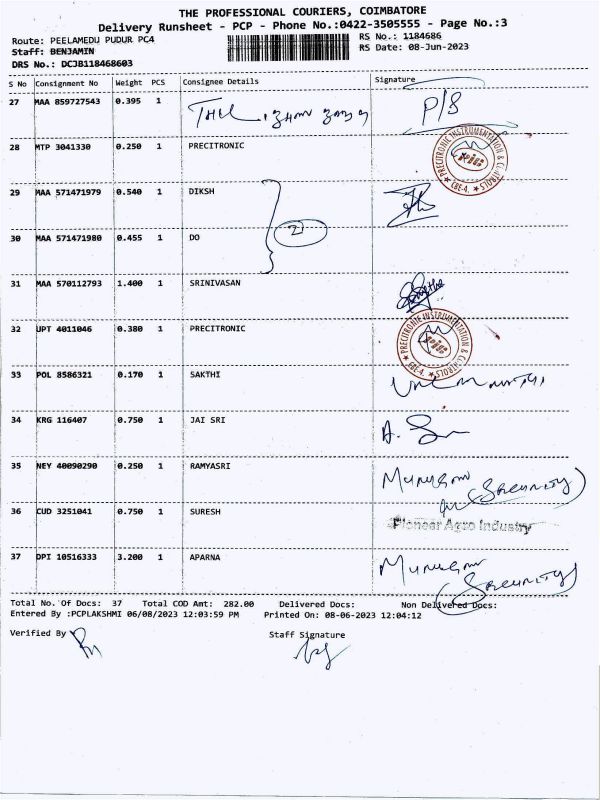 THE PROFESSIONAL COURIERS, COIMBATORE
Delivery Runsheet - PCP - Phone No.:0422-3505555 - Page No.:3
Route: PEELAMEDU PUDUR PC4
RS No.: 1184686
Staff: BENJAMIN
RS Date: 08-Jun-2023
DRS No.: DCJB118468603
S No Consignment No Weight PCS Consignee Details Signature
27 MAA 859727543 0.395 1 P/S
28 MTP 3041330 0.250 1 PRECITRONIC
PRECITRONIC INSTRUMENTATION & CONTROLS ★ CBE-4. ★
pic
29 MAA 571471979 0.540 1 DIKSH
2
30 MAA 571471980 0.455 1 DO
31 MAA 570112793 1.400 1 SRINIVASAN
32 UPT 4011046 0.380 1 PRECITRONIC
PRECITRONIC INSTRUMENTATION & CONTROLS ★ CBE-4. ★
pic
33 POL 8586321 0.170 1 SAKTHI
34 KRG 116407 0.750 1 JAI SRI
35 NEY 40090290 0.250 1 RAMYASRI Murugan
(Security)
36 CUD 3251041 0.750 1 SURESH Pioneer Agro Industry
37 DPI 10516333 3.200 1 APARNA Murugan
(Security)
Total No. Of Docs: 37 Total COD Amt: 282.00 Delivered Docs: Non Delivered Docs:
Entered By :PCPLAKSHMI 06/08/2023 12:03:59 PM Printed On: 08-06-2023 12:04:12
Verified By Staff Signature